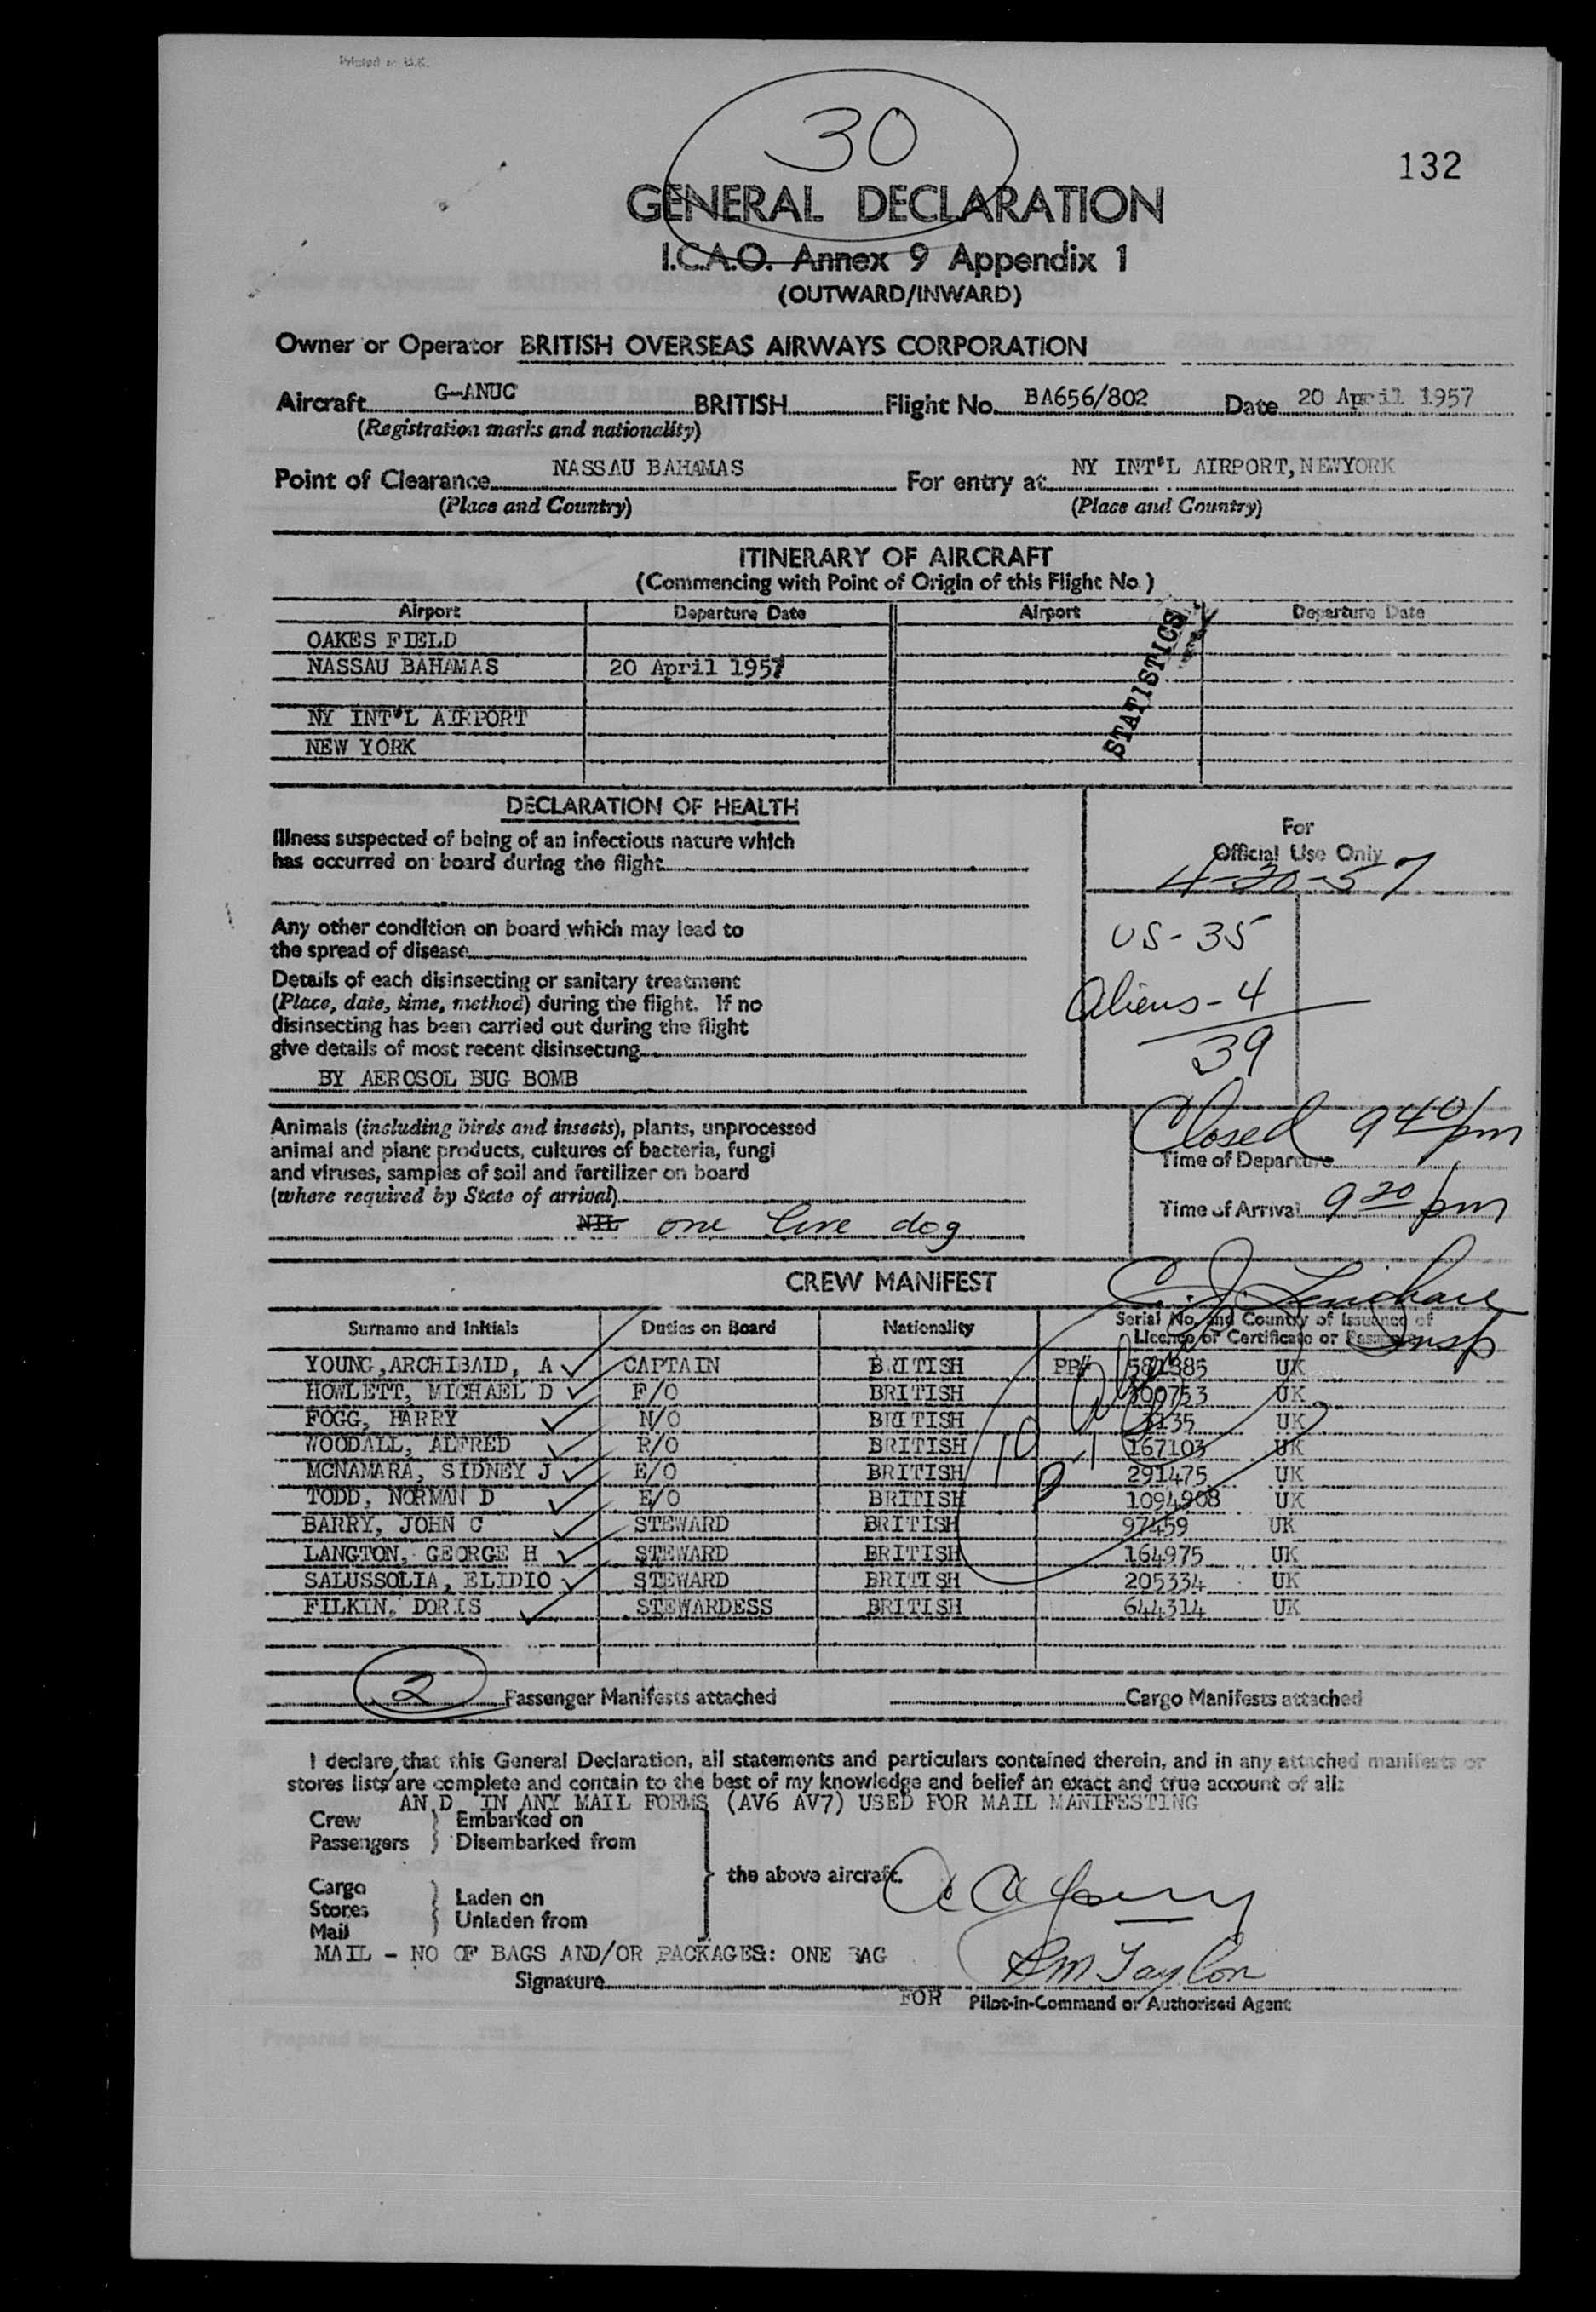 Printed in U.K.
30
132
GENERAL DECLARATION
I.C.A.O. Annex 9 Appendix 1
(OUTWARD/INWARD)
Owner or Operator BRITISH OVERSEAS AIRWAYS CORPORATION
Aircraft G-ANUC BRITISH Flight No. BA656/802 Date 20 April 1957
(Registration marks and nationality)
Point of Clearance NASSAU BAHAMAS For entry at NY INT'L AIRPORT, NEWYORK
(Place and Country) (Place and Country)
ITINERARY OF AIRCRAFT
(Commencing with Point of Origin of this Flight No.)
Airport Departure Date Airport Departure Date
OAKES FIELD
NASSAU BAHAMAS 20 April 1957
NY INT'L AIRPORT
NEW YORK
STATISTICS
DECLARATION OF HEALTH
Illness suspected of being of an infectious nature which
has occurred on board during the flight
For
Official Use Only
4-20-57
Any other condition on board which may lead to
the spread of disease
US-35
Aliens-4
39
Details of each disinsecting or sanitary treatment
(Place, date, time, method) during the flight. If no
disinsecting has been carried out during the flight
give details of most recent disinsecting
BY AEROSOL BUG BOMB
Animals (including birds and insects), plants, unprocessed
animal and plant products, cultures of bacteria, fungi
and viruses, samples of soil and fertilizer on board
(where required by State of arrival)
NIL one live dog
Closed 9 40/pm
Time of Departure
Time of Arrival 9 20/pm
CREW MANIFEST
Insp
Surname and Initials Duties on Board Nationality Serial No. and Country of Issuance of
Licence or Certificate or Passport
YOUNG,ARCHIBAID, A CAPTAIN BRITISH PP# 581385 UK
HOWLETT, MICHAEL D F/O BRITISH 300753 UK
FOGG, HARRY N/O BRITISH 3135 UK
WOODALL, ALFRED R/O BRITISH 167103 UK
MCNAMARA, SIDNEY J E/O BRITISH 291475 UK
TODD, NORMAN D E/O BRITISH 1094908 UK
BARRY, JOHN C STEWARD BRITISH 97459 UK
LANGTON, GEORGE H STEWARD BRITISH 164975 UK
SALUSSOLIA, ELIDIO STEWARD BRITISH 205334 UK
FILKIN, DORIS STEWARDESS BRITISH 644314 UK
10
2 Passenger Manifests attached Cargo Manifests attached
I declare that this General Declaration, all statements and particulars contained therein, and in any attached manifests or
stores lists/are complete and contain to the best of my knowledge and belief an exact and true account of all:
AN D IN ANY MAIL FORMS (AV6 AV7) USED FOR MAIL MANIFESTING
Crew Embarked on
Passengers Disembarked from
the above aircraft.
Cargo
Stores
Mail
Laden on
Unladen from
MAIL - NO OF BAGS AND/OR PACKAGES: ONE BAG
Signature
FOR Pilot-in-Command or Authorised Agent